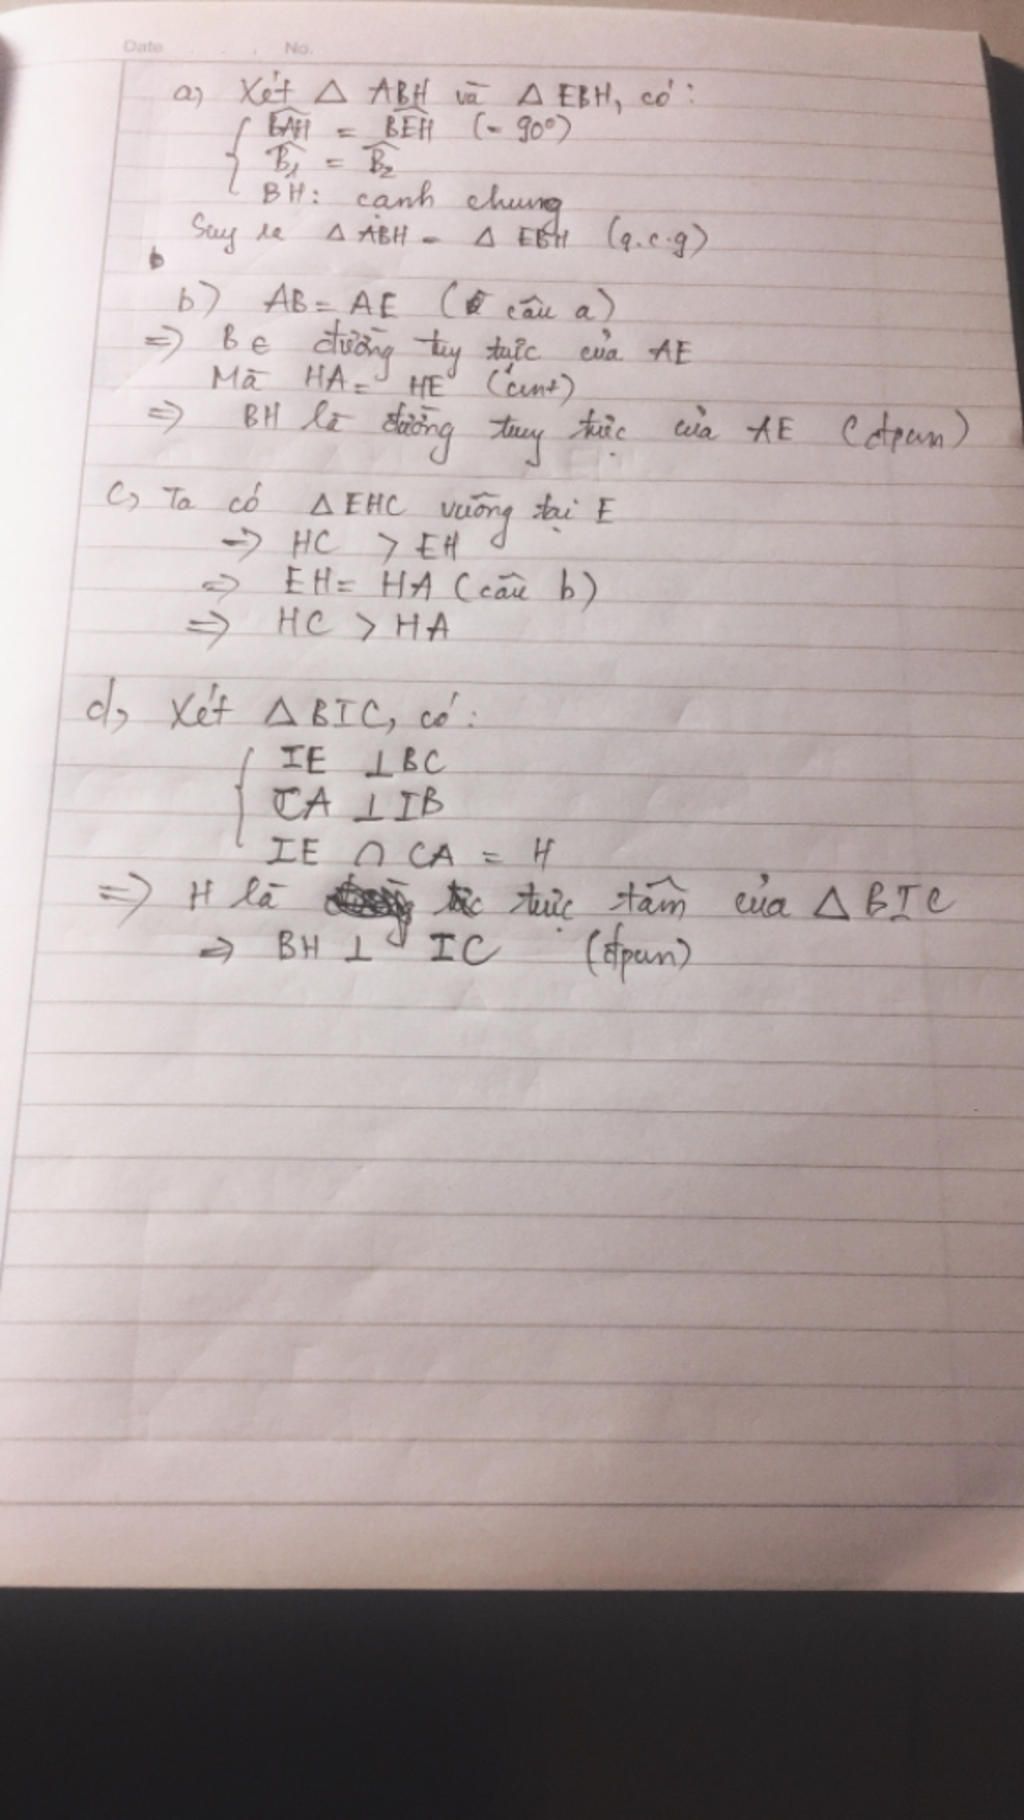 Date No.
a, Xét △ ABH và △ EBH, có:
BAH = BEH (= 90°)
B₁ = B₂
BH: cạnh chung
Suy ra △ ABH = △ EBH (g.c.g)
b
b) AB = AE ( câu a)
=> B ∈ đường tuy tực của AE
Mà HA = HE (cmt)
=> BH là đường tuy tực của AE (đpcm)
c, Ta có △ EHC vuông tại E
=> HC > EH
=> EH = HA (câu b)
=> HC > HA
d, Xét △ BIC, có:
IE ⊥ BC
CA ⊥ IB
IE ∩ CA = H
=> H là tực tâm của △ BIC
=> BH ⊥ IC (đpcm)